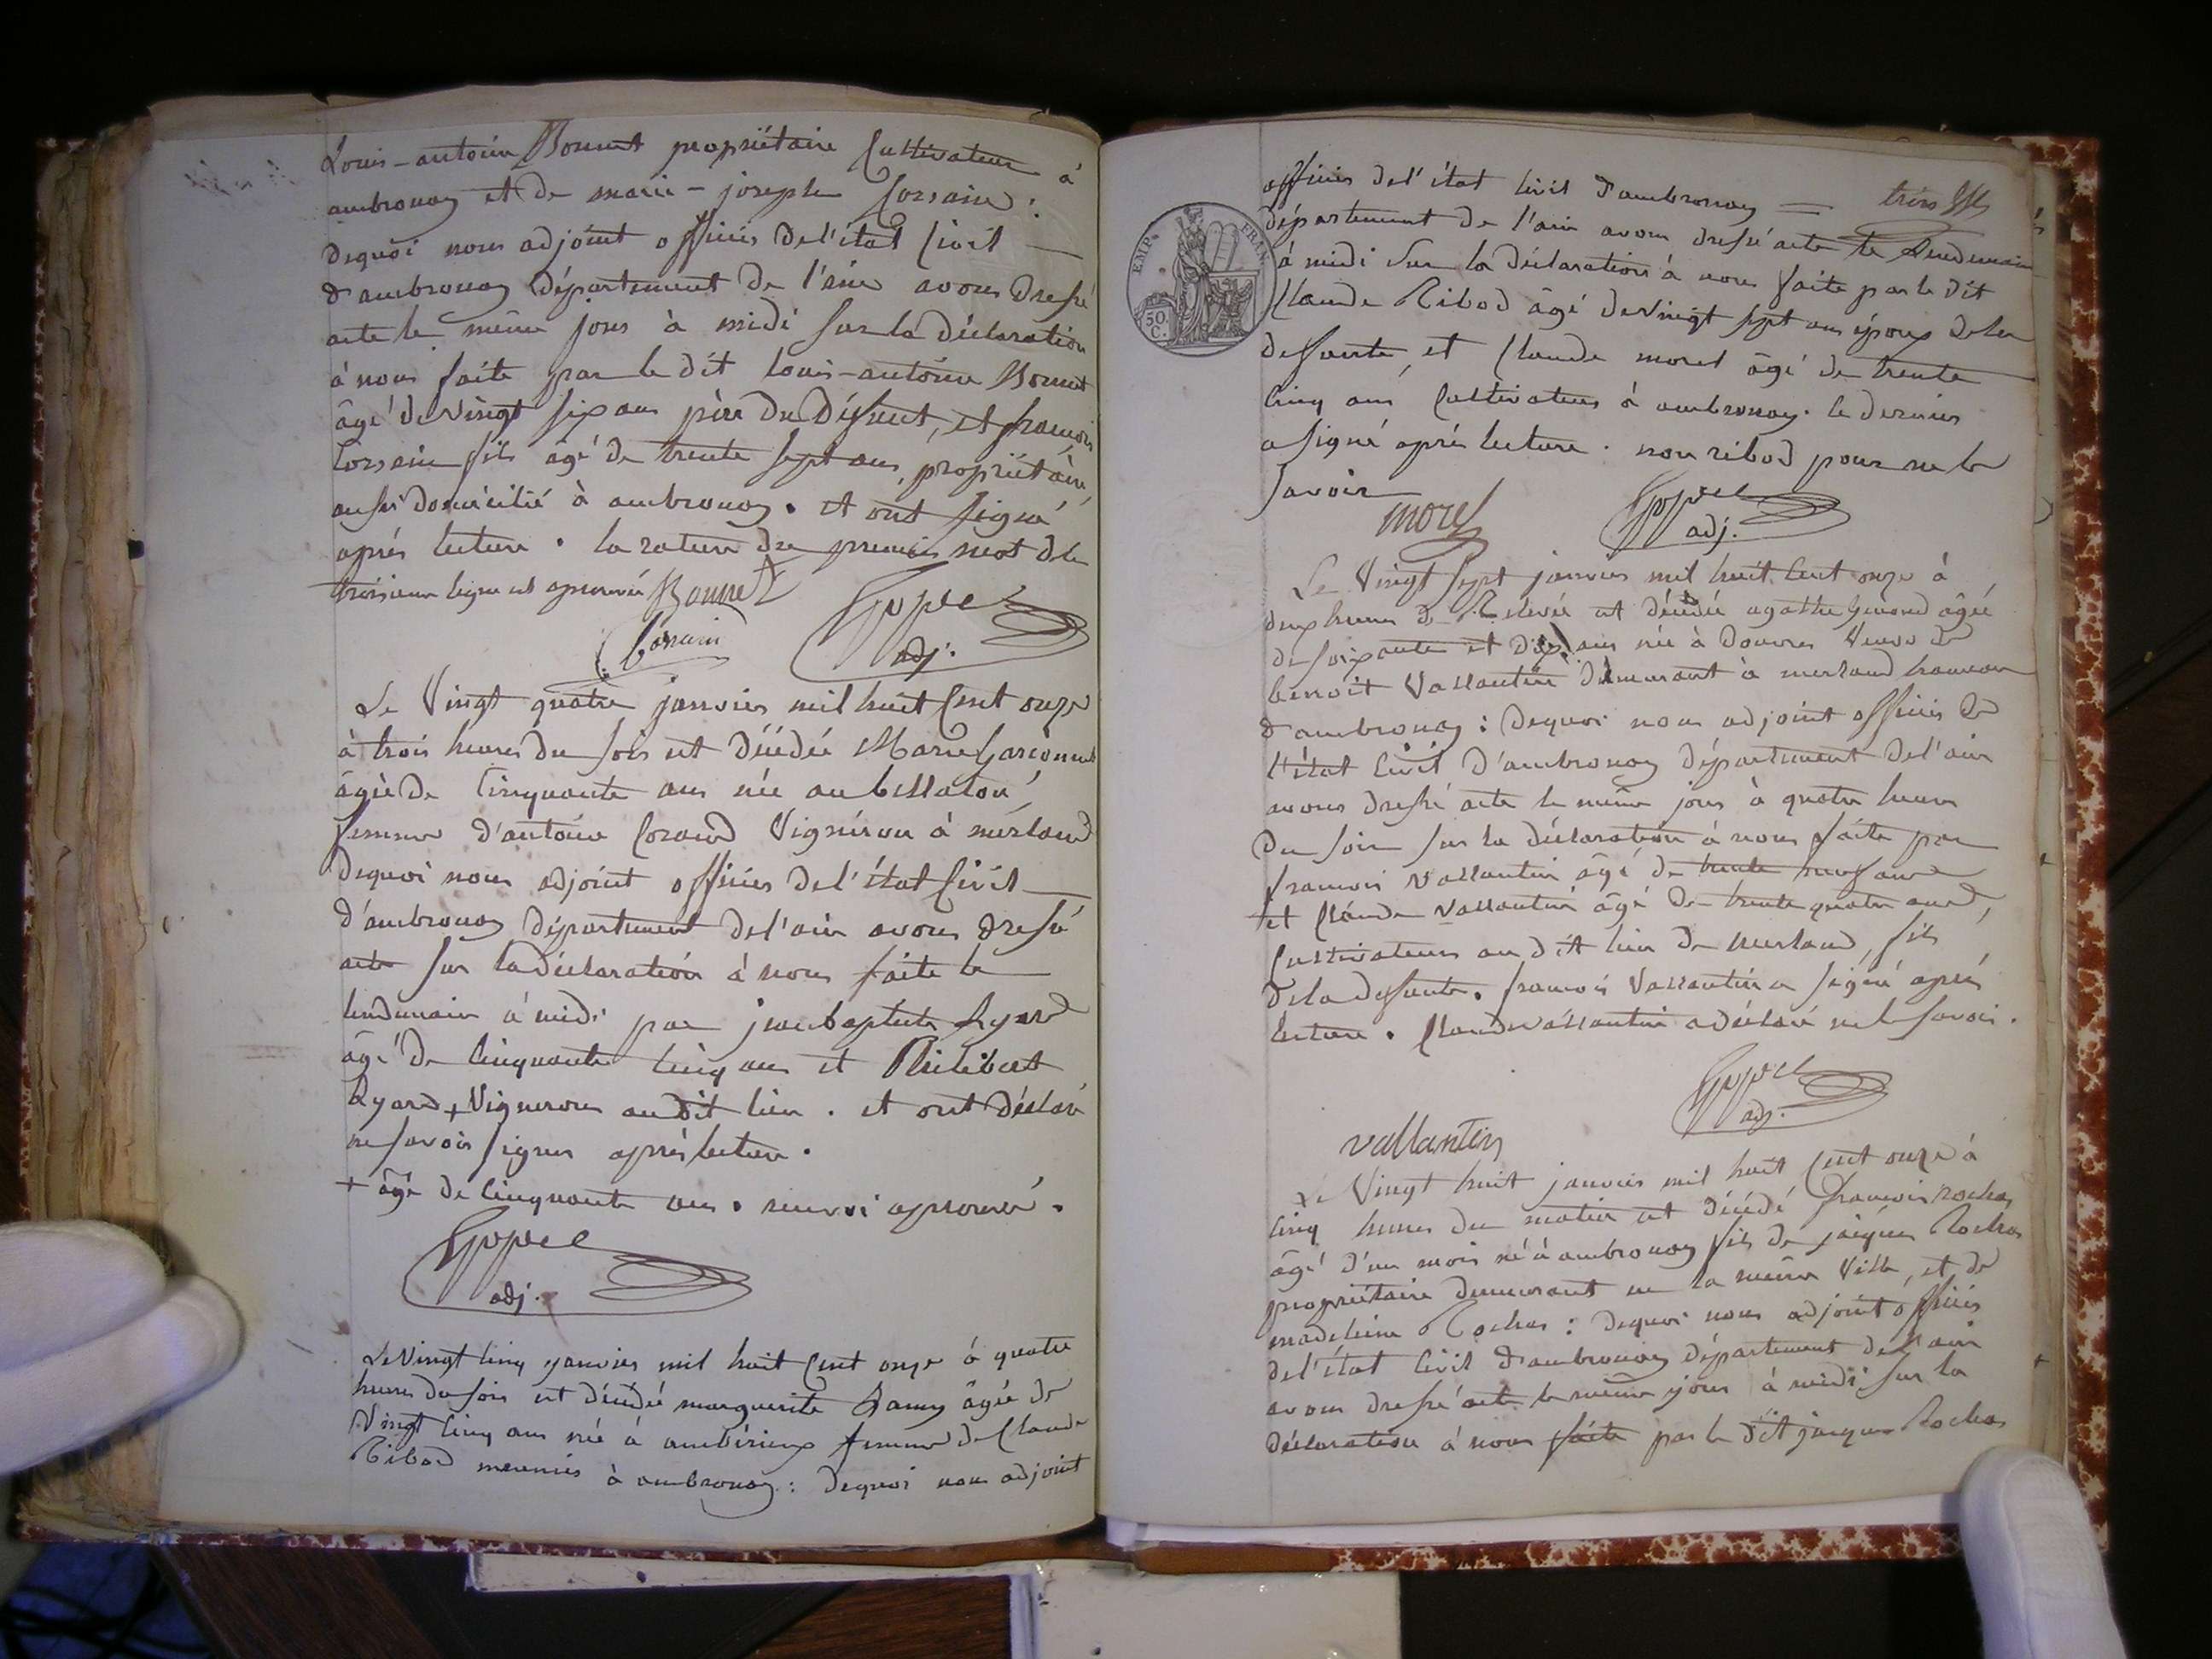 Louis-antoine Bonnet propriétaire Cultivateur à
ambronay et de marie-josephe Corsain:
dequoi nous adjoint officier de l'état Civil
d'ambronay département de l'ain avons dressé
acte le même jour à midi sur la déclaration
à nous faite par le dit Louis-antoine Bonnet
âgé de vingt six ans père du défunt, et françois
Corsain fils âgé de trente sept ans, propriétaire,
aussi domicilié à ambronay. et ont signé
après lecture. la rature du premier mot de la
troisieme ligne est aprouvée Bonnet
Corsain
adj.
Le Vingt quatre janvier mil huit Cent onze
à trois heures du soir est décédée Marie
âgée de Cinquante ans née au
femme d'antoine Vigneron à merland
dequoi nous adjoint officier de l'état Civil
d'ambronay département de l'ain avons dressé
acte sur la déclaration à nous faite le
lendemain à midi par jean baptiste Lyard
âgé de Cinquante Cinq ans et Philibert
Lyard + Vignerons audit lieu. et ont déclaré
ne savoir signer après lecture.
+ âgé de Cinquante ans. renvoi aprouvé.
adj.
Le Vingt Cinq janvier mil huit Cent onze à quatre
heures du soir est décédée marguerite âgée de
Vingt Cinq ans née à ambérieux femme de Claude
Ribod meunier à ambronay: dequoi nous adjoint
trois
officier de l'état Civil d'ambronay
EMP. FRAN.
50 C.
département de l'ain avons dressé acte le Lendemain
à midi sur la déclaration à nous faite par le dit
Claude Ribod âgé de vingt sept ans époux de la
defunte, et Claude morel âgé de trente
Cinq ans Cultivateur à ambronay. le dernier
a signé après lecture. non ribod pour ne le
savoir
morel
adj.
Le Vingt sept janvier mil huit Cent onze à
deux heures de Relevée est décédée agathe âgée
de soixante et dix ans née à Douvres Veuve de
benoit Vallantin demeurant à merland hameau
d'ambronay: dequoi nous adjoint officier de
l'état Civil d'ambronay département de l'ain
avons dressé acte le même jour à quatre heures
du soir sur la déclaration à nous faite par
françois Vallantin âgé de trente neuf ans
et Claude Vallantin âgé de trente quatre ans,
Cultivateurs au dit lieu de merland, fils
de la defunte. françois Vallantin a signé après
lecture. Claude Vallantin a déclaré ne le savoir.
adj.
vallantin
Le Vingt huit janvier mil huit Cent onze à
Cinq heures du matin est décédé françois rochas
âgé d'un mois né à ambronay fils de jacques Rochas
propriétaire demeurant en la même Ville, et de
madeleine Rochas: dequoi nous adjoint officier
de l'état Civil d'ambronay département de l'ain
avons dressé acte le même jour à midi sur la
déclaration à nous faite par le dit jacques Rochas